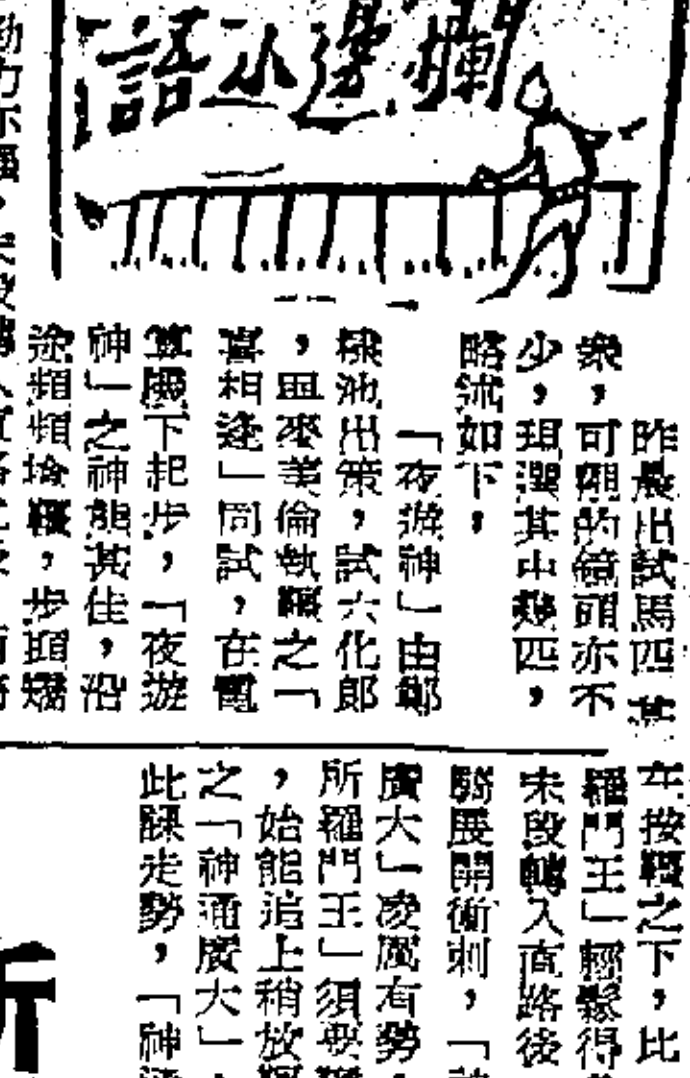 欄邊小語
昨晨出試馬匹甚
衆，可觀的鏡頭亦不
少，現選其中幾匹，
略述如下，
「夜遊神」由鄭
棣池出策，試六化郎
，與麥美倫執韁之「
喜相逢」同試，在電
算機下起步，「夜遊
神」之神態甚佳，沿
途頻頻搶韁，步頭矯
在按韁之下，比
羅門王」輕鬆得
末段轉入直路後
騎展開衝刺，「
廣大」凌厲有勢
所羅門王」須要
，始能追上稍放
之「神通廣大」
此課走勢，「神